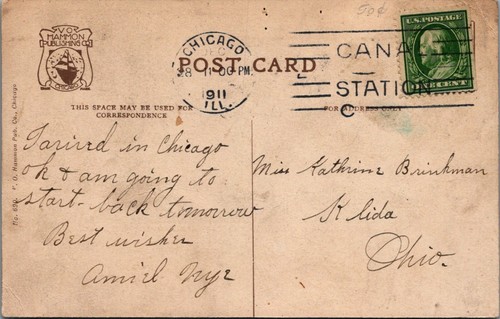 50¢
V.O.
HAMMON
PUBLISHING CO.
CHICAGO
CHICAGO
DEC
8 11 00 PM
1911
ILL.
POST CARD
U.S. POSTAGE
CENT
CANAL
STATION
C
THIS SPACE MAY BE USED FOR
CORRESPONDENCE
FOR ADDRESS ONLY
V. O. Hammon Pub. Co., Chicago
I arived in Chicago
ok & am going to
start back tomorrow
Best wishes
Amiel Nye
Miss Kathrine Brinkman
Klida
Ohio.